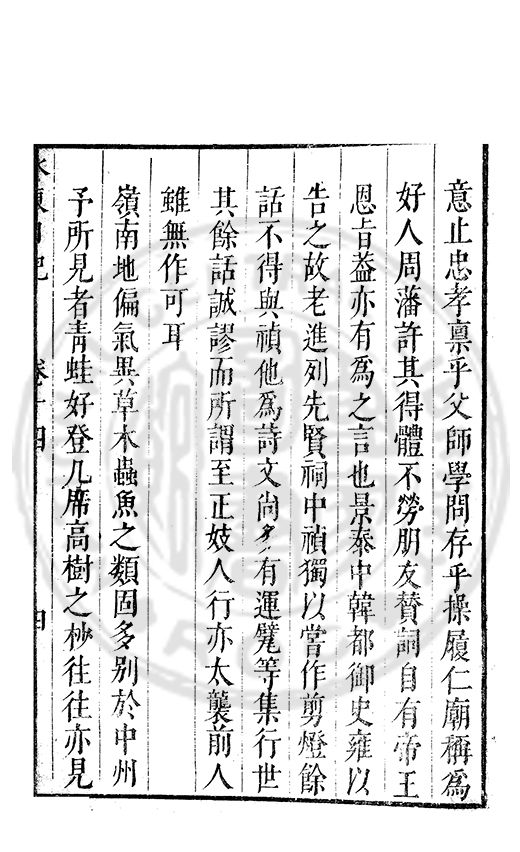 意止忠孝稟乎父師學問存乎操履仁廟稱爲
好人周藩許其得體不勞朋友贊詞自有帝王
恩旨蓋亦有爲之言也景泰中韓都御史雍以
告之故老進列先賢祠中禎獨以嘗作剪燈餘
話不得與禎他爲詩文尚多有運甓等集行世
其餘話誠謬而所謂至正妓人行亦太襲前人
雖無作可耳
嶺南地偏氣異草木蟲魚之類固多别於中州
予所見者青蛙好登几席高樹之杪往往亦見
水東日記 卷十四 四